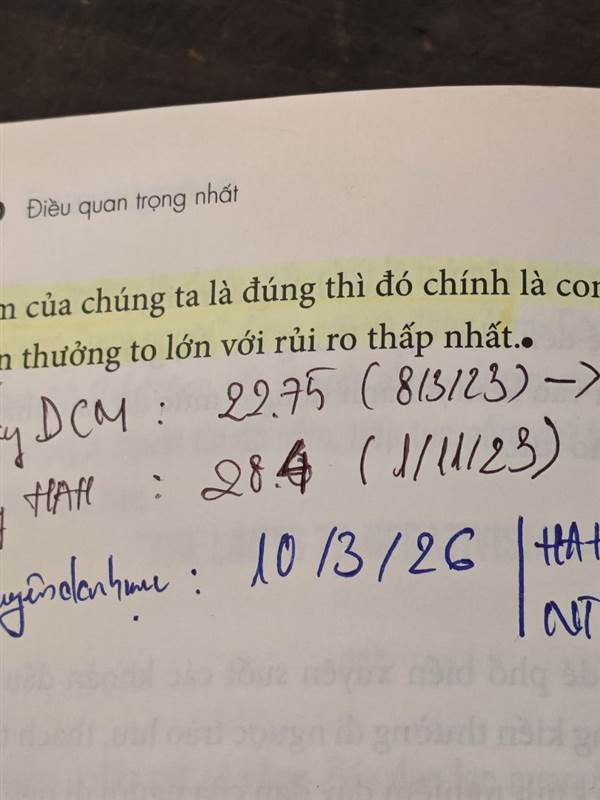 Điều quan trọng nhất
của chúng ta là đúng thì đó chính là con
thưởng to lớn với rủi ro thấp nhất.
DCM : 22.75 (8/3/23) →
HAH : 28.4 (1/11/23)
: 10/3/26 | HAH
NT